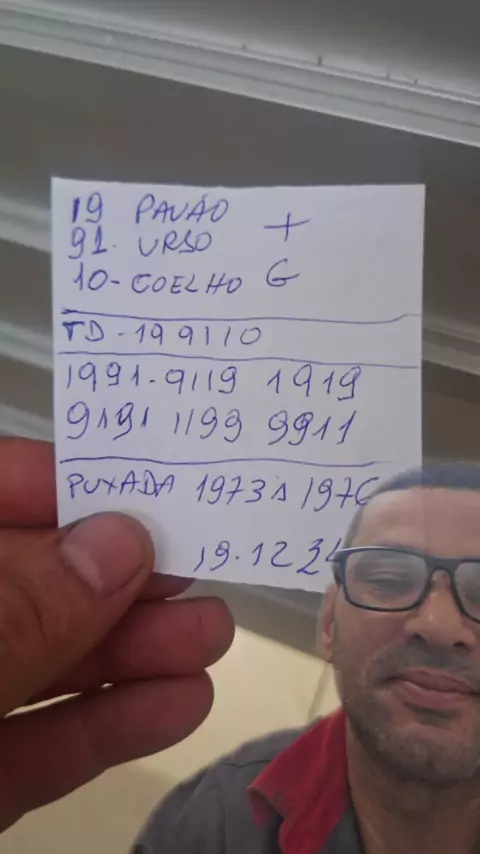 19 PAVÃO +
91. URSO
10- COELHO G
TD - 199110
1991-9119 1919
9191 1199 9911
PUXADA 1973 A 1976
19.12